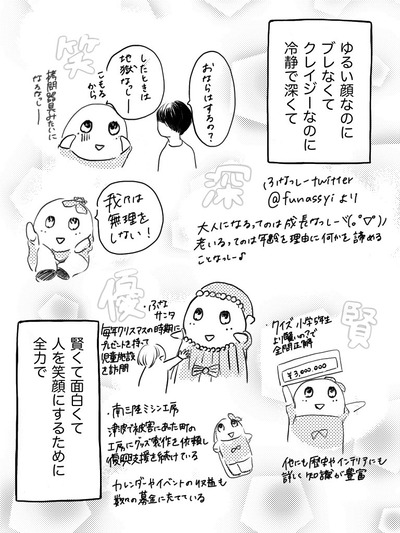 ゆるい顔なのに
ブレなくて
クレイジーなのに
冷静で深くて
笑
おならはするの?
したときは
地獄なっしー
こもる
から
拷問器具みたいに
なるなっしー
深
ふなっしーtwitter
@funassyiより
大人になるってのは成長なっしーヾ(。゜▽゜)ノ
老いるってのは年齢を理由に何かを諦める
ことなっしー♪
我々は
無理を
しない!
優
ふなサンタ
毎年クリスマスの時期に
プレゼントを持って
児童施設
を訪問
賢
・クイズ小学5年生
より賢いの?で
全問正解
¥3,000,000
他にも歴史やインテリアにも
詳しく知識が豊富
賢くて面白くて
人を笑顔にするために
全力で
・南三陸ミシン工房
津波で被害にあた町の
工房にグッズ製作を依頼し
復興支援を続けている
カレンダーやイベントの収益も
数々の募金にたてている